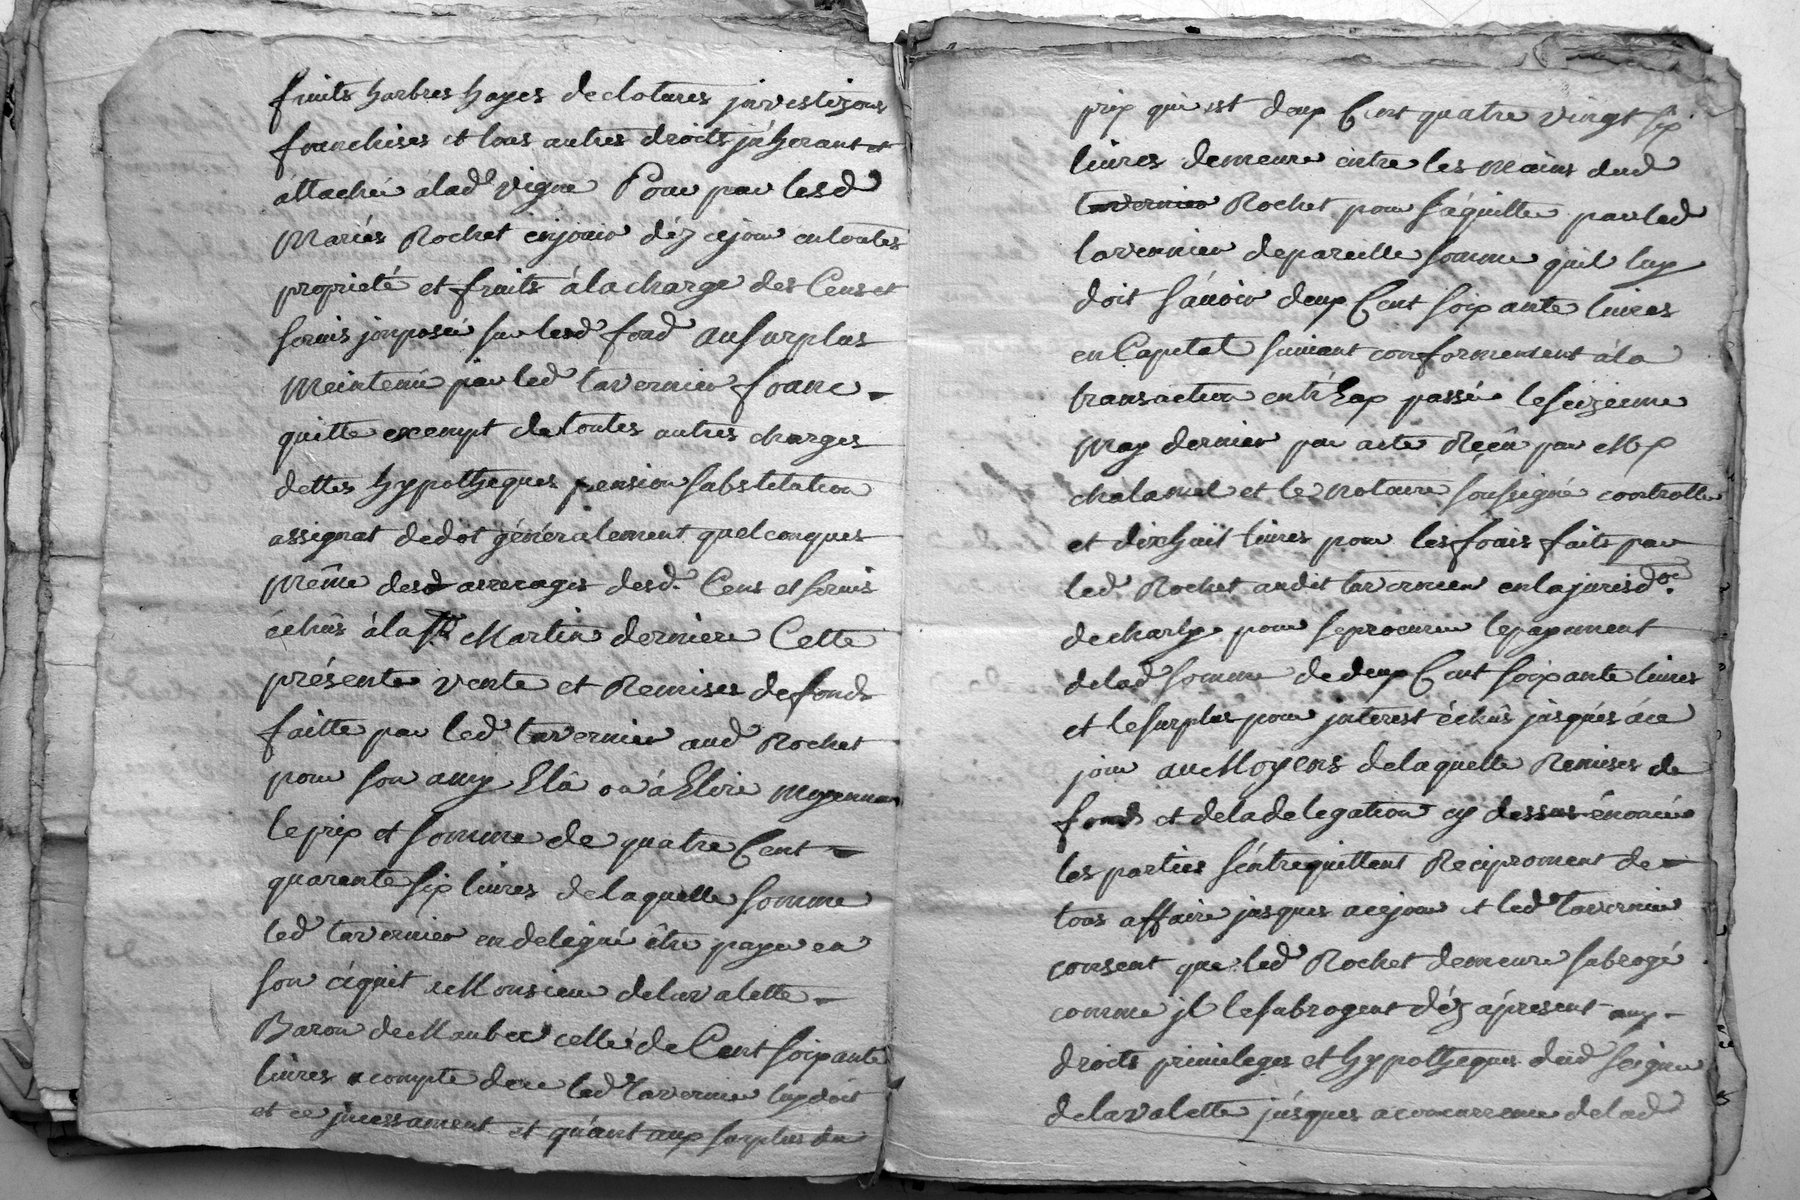 fruits harbres hayes de clotures jnvestizons
franchises et tous autres droits jnherant et
attaché à lad vigne Pour par lesd
Mariés Rochet en jouir déz ce jour en toutes
proprieté et fruits à la charge des Cens et
servis jmposéé sur lesd fond au surplus
Meintenu par led tavernier franc
quitte exempt de toutes autres charges
dettes hypotheques pension substitution
assignat dédot généralement quelconques
Même desd arrerages desd. Cens et servis
échûs à la St Martin derniere Cette
présente vente et Remises de fonds
faitte par led tavernier aud Rochet
pour son amy Elû ou à Elire moyennan
le prix et somme de quatre Cent
quarente six livres de laquelle somme
led tavernier en delégué être payer en
son acquit a Monsieur delavalette
Baron de Maubec celle de Cent soixante
livres a compte de ce led Tavernier luy doit
et ce jncessament et quant aux surplus du
prix qui est deux Cent quatre vingt six
livres demeure entre les mains dud
tavernier Rochet pour s'aquitter par led
tavernier de pareille somme quil luy
doit Sávoir deux Cent soixante livres
en Capital suivant conformement à la
transaction entr'Eux passée le seizieme
May dernier par acte Reçeû par Me
chalamel et le notaire soussigné controllé
et dixhuit livres pour les frais faits par
led. Rochet audit tavernier en la jurisdon.
de charly pour se procurer le payement
delad somme de deux Cent soixante livres
et le surplus pour jnterest échûs jusques à ce
jour au Moyens de laquelle Remises de
fonds et de la delegation cy dessus énoncée
les parties s'entrequittent Reciproment de
tous affaire jusques a ce jour et led Tavernier
consent que led Rochet demeure subrogé
comme jl le subrogent déz à présent aux
droits privileges et hypotheques dud Seigneur
delavalette jusques a concurrence delad